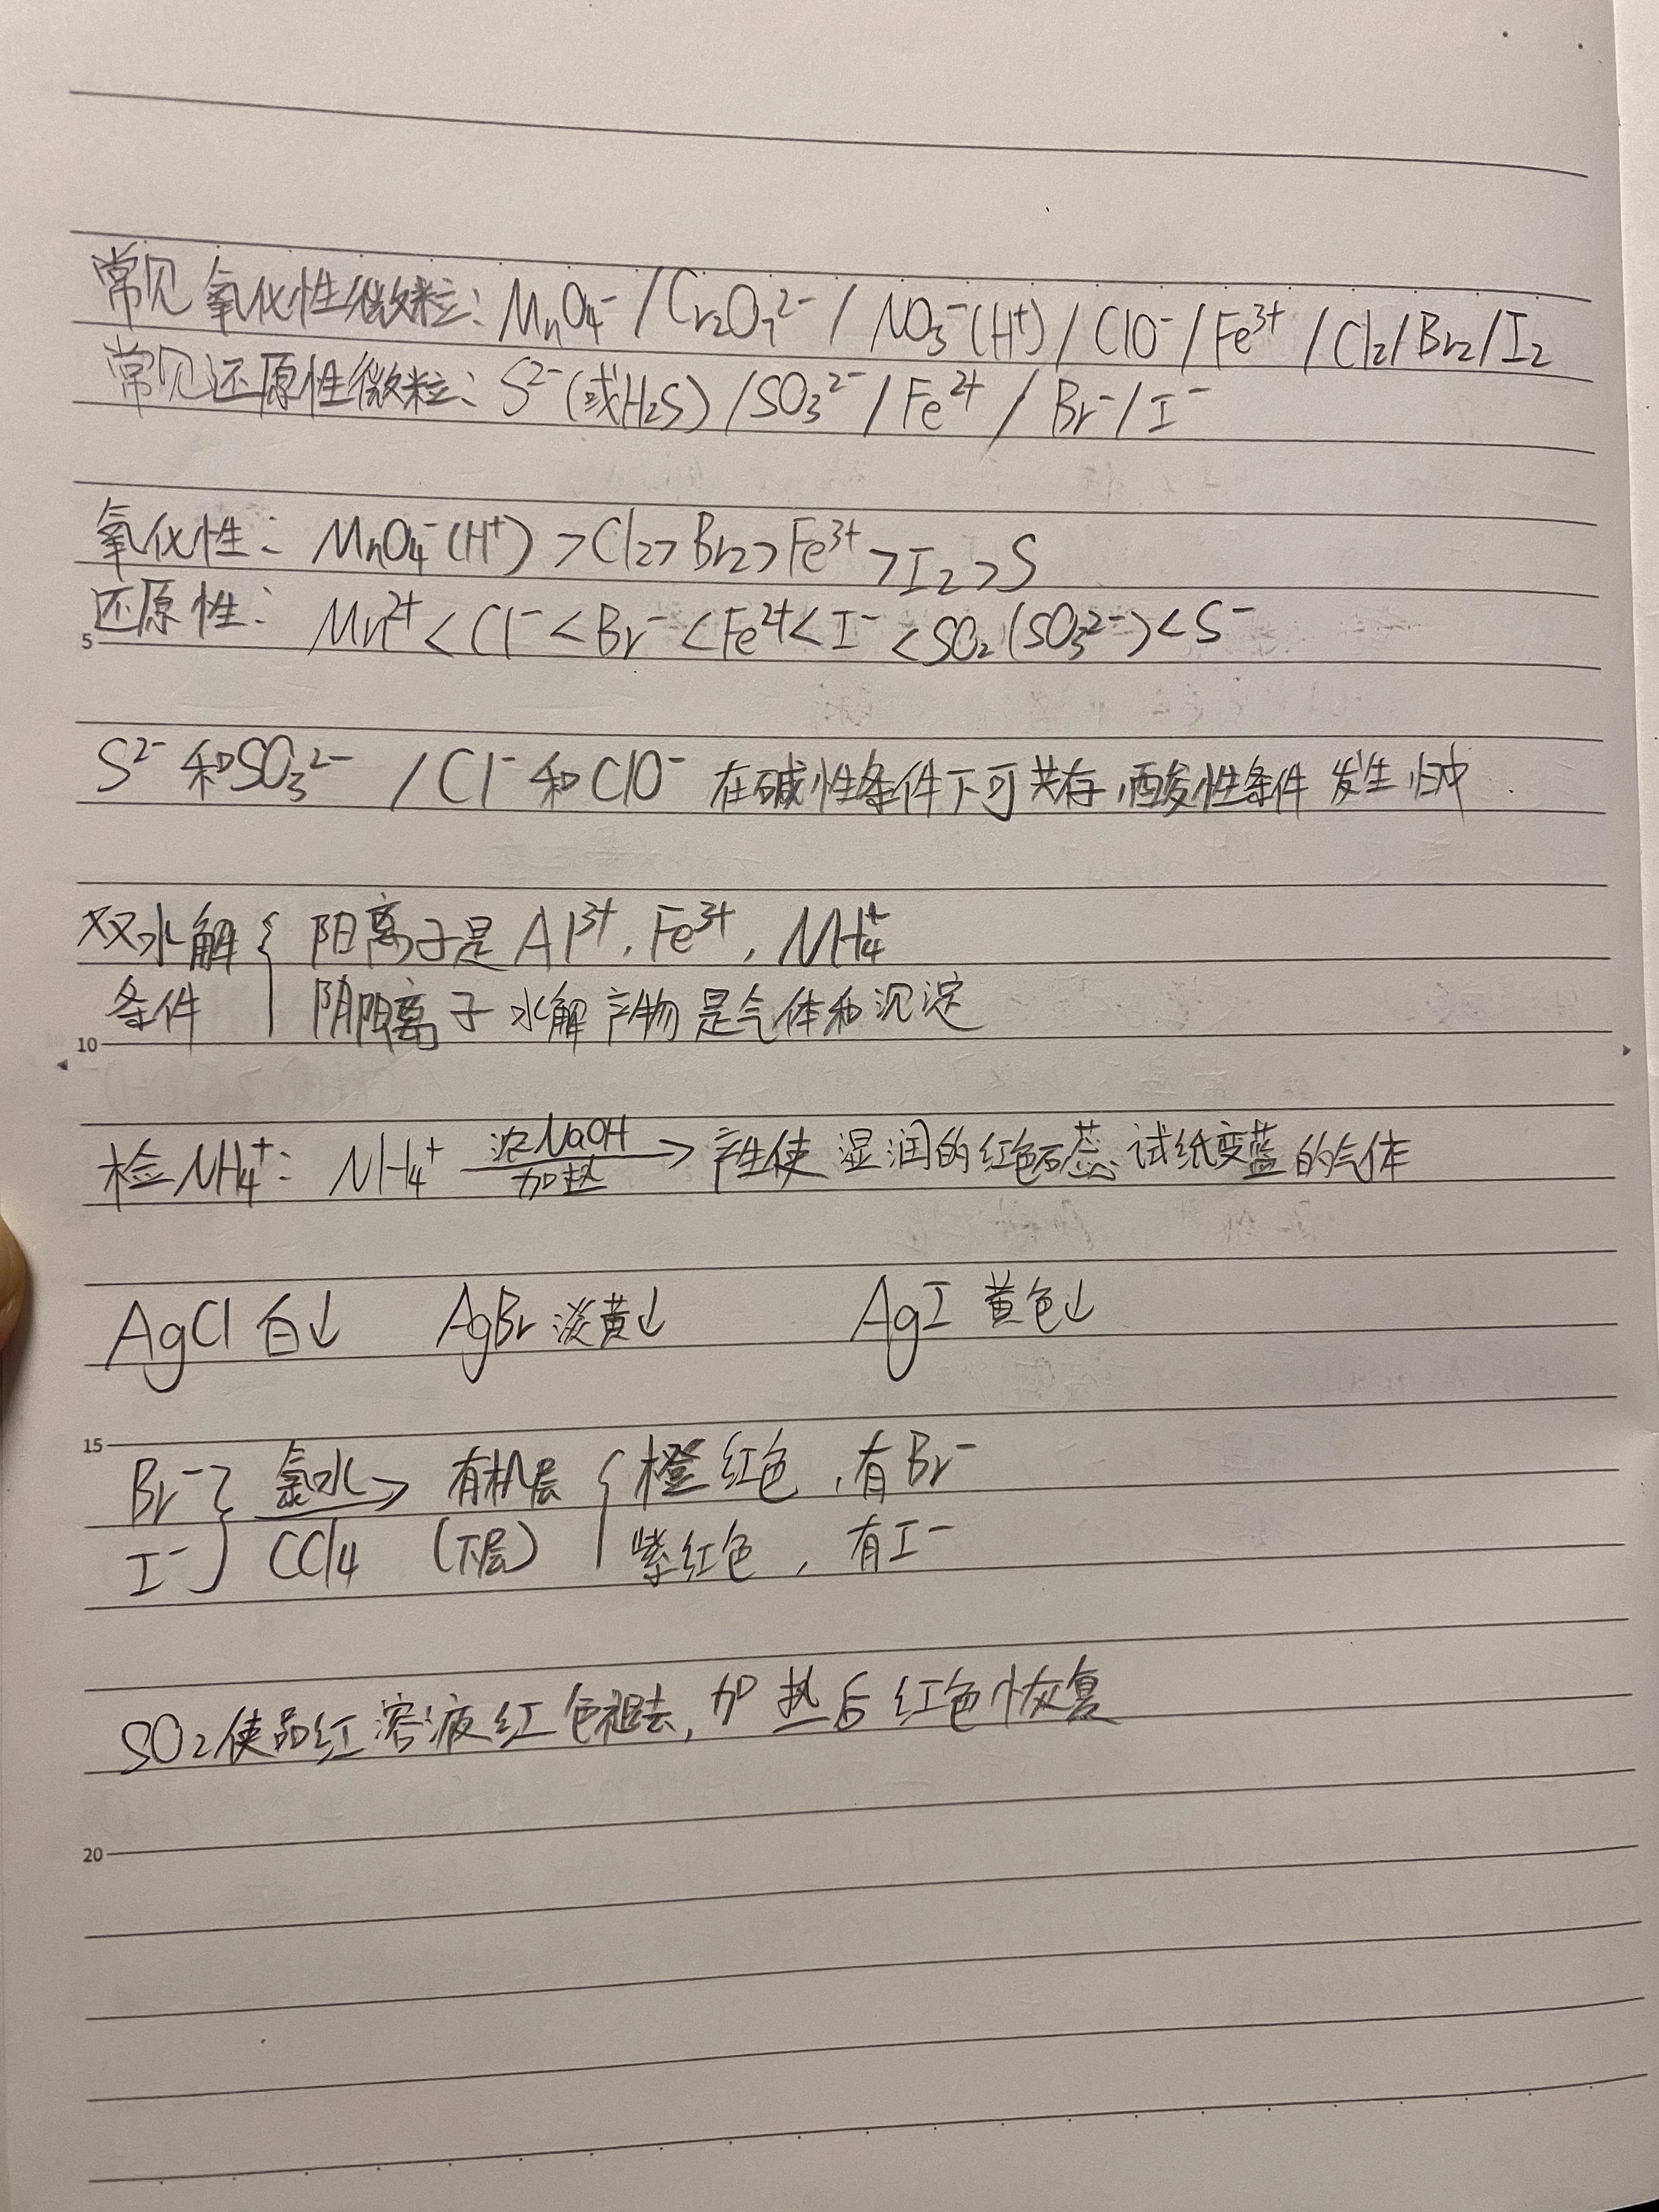 常见氧化性微粒：MnO₄⁻ / Cr₂O₇²⁻ / NO₃⁻(H⁺) / ClO⁻ / Fe³⁺ / Cl₂ / Br₂ / I₂
常见还原性微粒：S²⁻(或H₂S) / SO₃²⁻ / Fe²⁺ / Br⁻ / I⁻
氧化性：MnO₄⁻(H⁺) > Cl₂ > Br₂ > Fe³⁺ > I₂ > S
还原性：Mn²⁺ < Cl⁻ < Br⁻ < Fe²⁺ < I⁻ < SO₂(SO₃²⁻) < S⁻
5
S²⁻和SO₃²⁻ / Cl⁻和ClO⁻ 在碱性条件下可共存，酸性条件发生归中
双水解 { 阳离子是 Al³⁺, Fe³⁺, NH₄⁺
条件 阴阳离子水解产物是气体和沉淀
10
检NH₄⁺：NH₄⁺ 浓NaOH 加热 → 产生使湿润的红色石蕊试纸变蓝的气体
AgCl 白↓ AgBr 淡黄↓ AgI 黄色↓
15
Br⁻ } 氯水 → 有机层 { 橙红色，有Br⁻
I⁻ CCl₄ (下层) 紫红色，有I⁻
SO₂使品红溶液红色褪去，加热后红色恢复
20